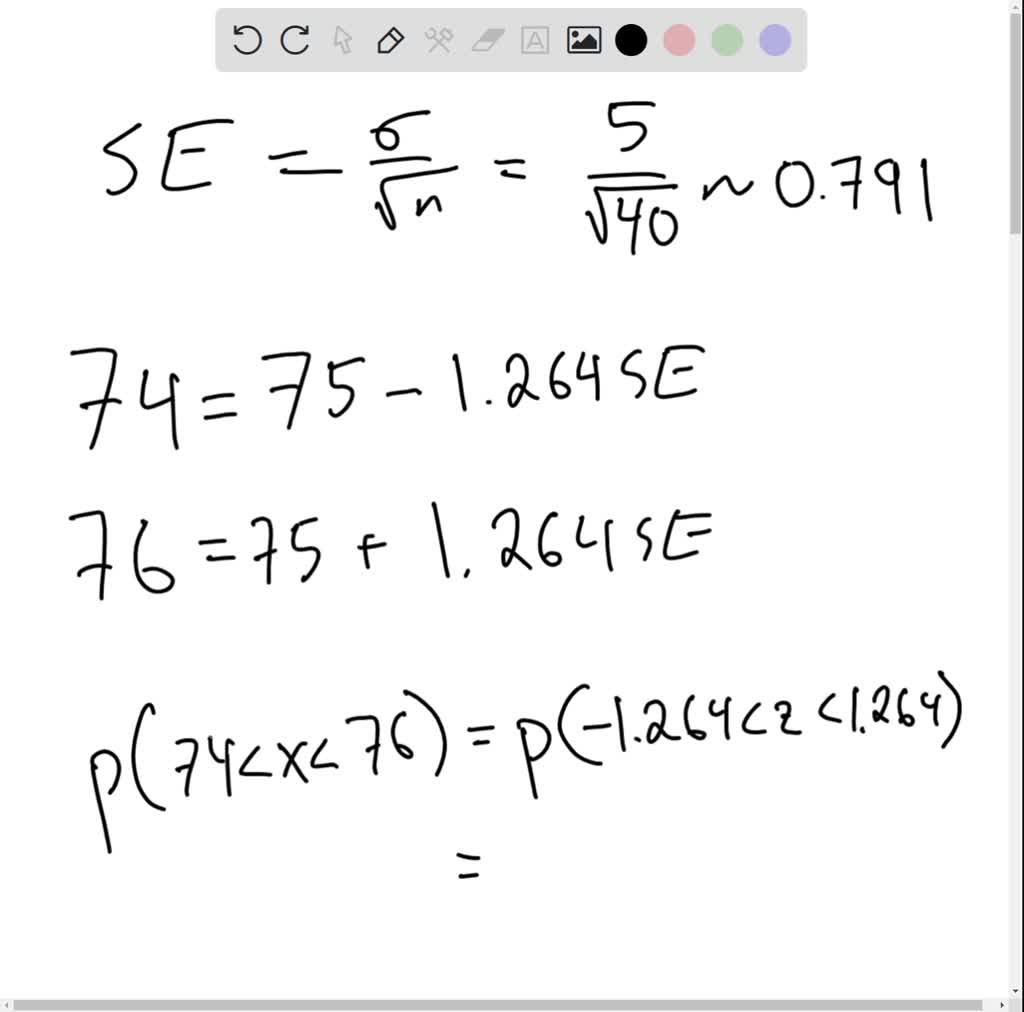 SE = σ/√n = 5/√40 ~ 0.791
74 = 75 - 1.264 SE
76 = 75 + 1.264 SE
p(74<x<76) = p(-1.264<z<1.264)
=